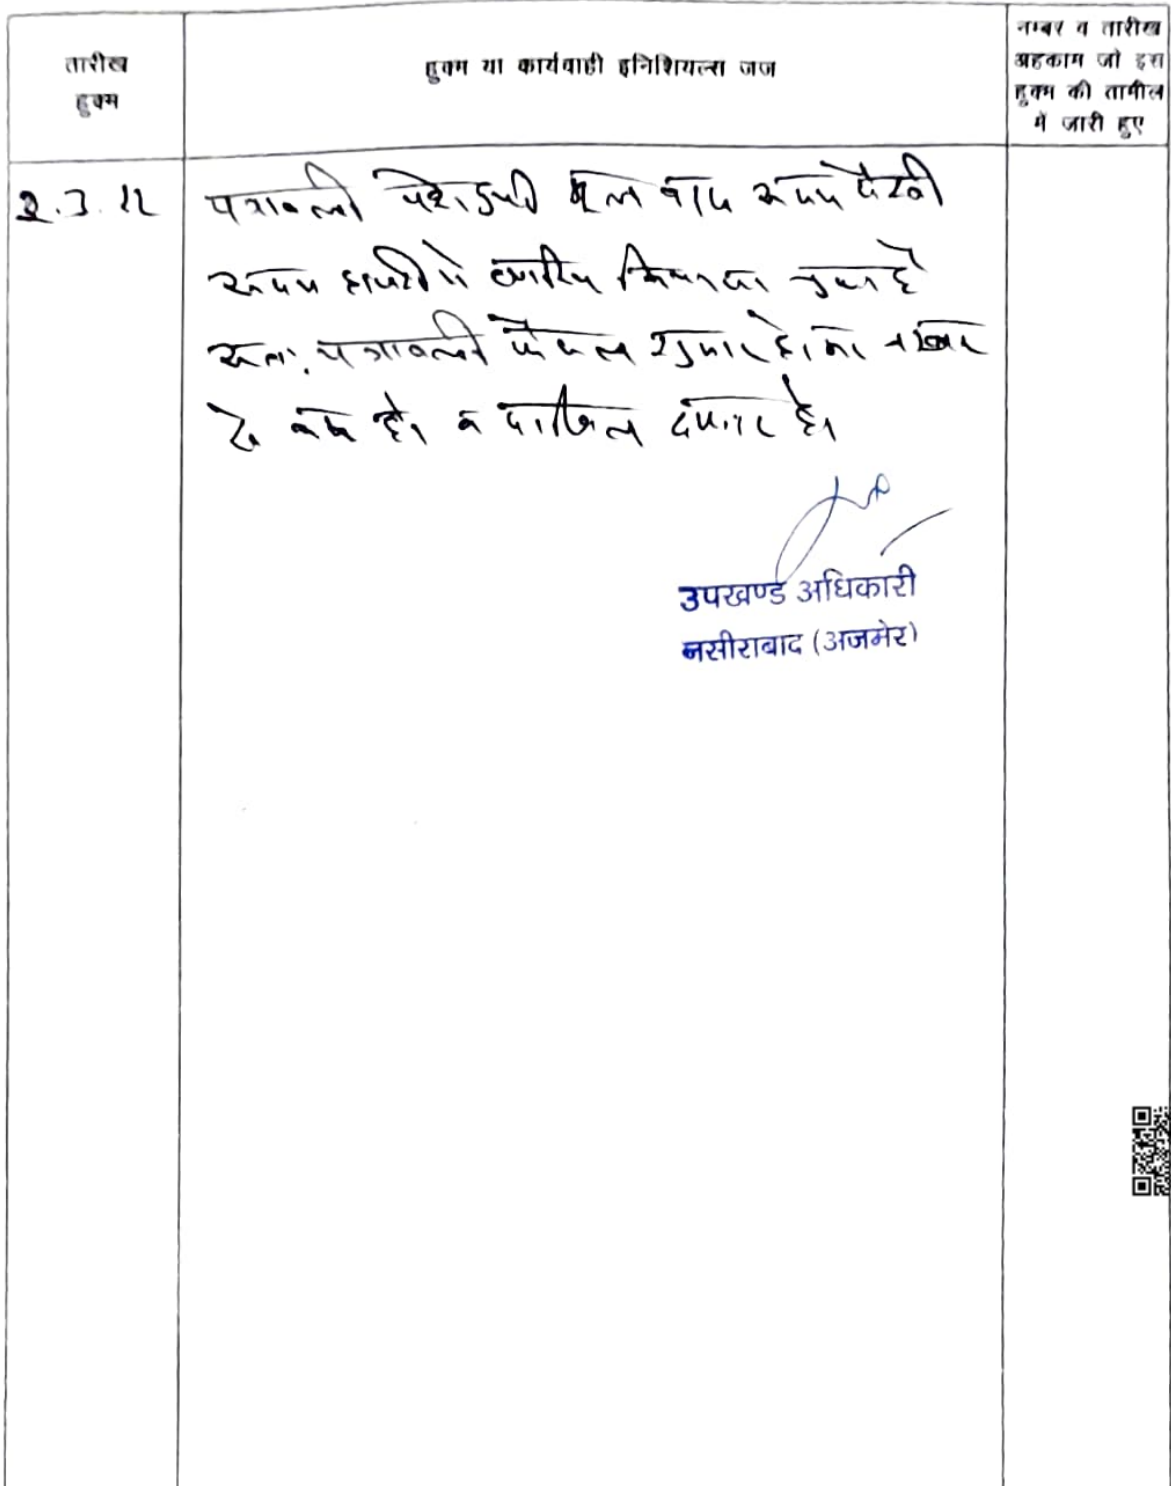 तारीख
हुक्म
हुक्म या कार्यवाही इनिशियल्स जज
नम्बर व तारीख
अहकाम जो इस
हुक्म की तामील
में जारी हुए
2.3.22
पत्रावली पेश हुयी मूल वाद अदम पैरवी
अदम हाजरी में खारिज किया जा चुका है
अतः पत्रावली फैसल शुमार होकर नम्बर
से कम हो व दाखिल दफ्तर हो
उपखण्ड अधिकारी
नसीराबाद (अजमेर)